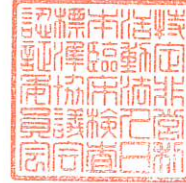 特定非営利
活動法人日
本臨床検査
標準協議会
認証委員会